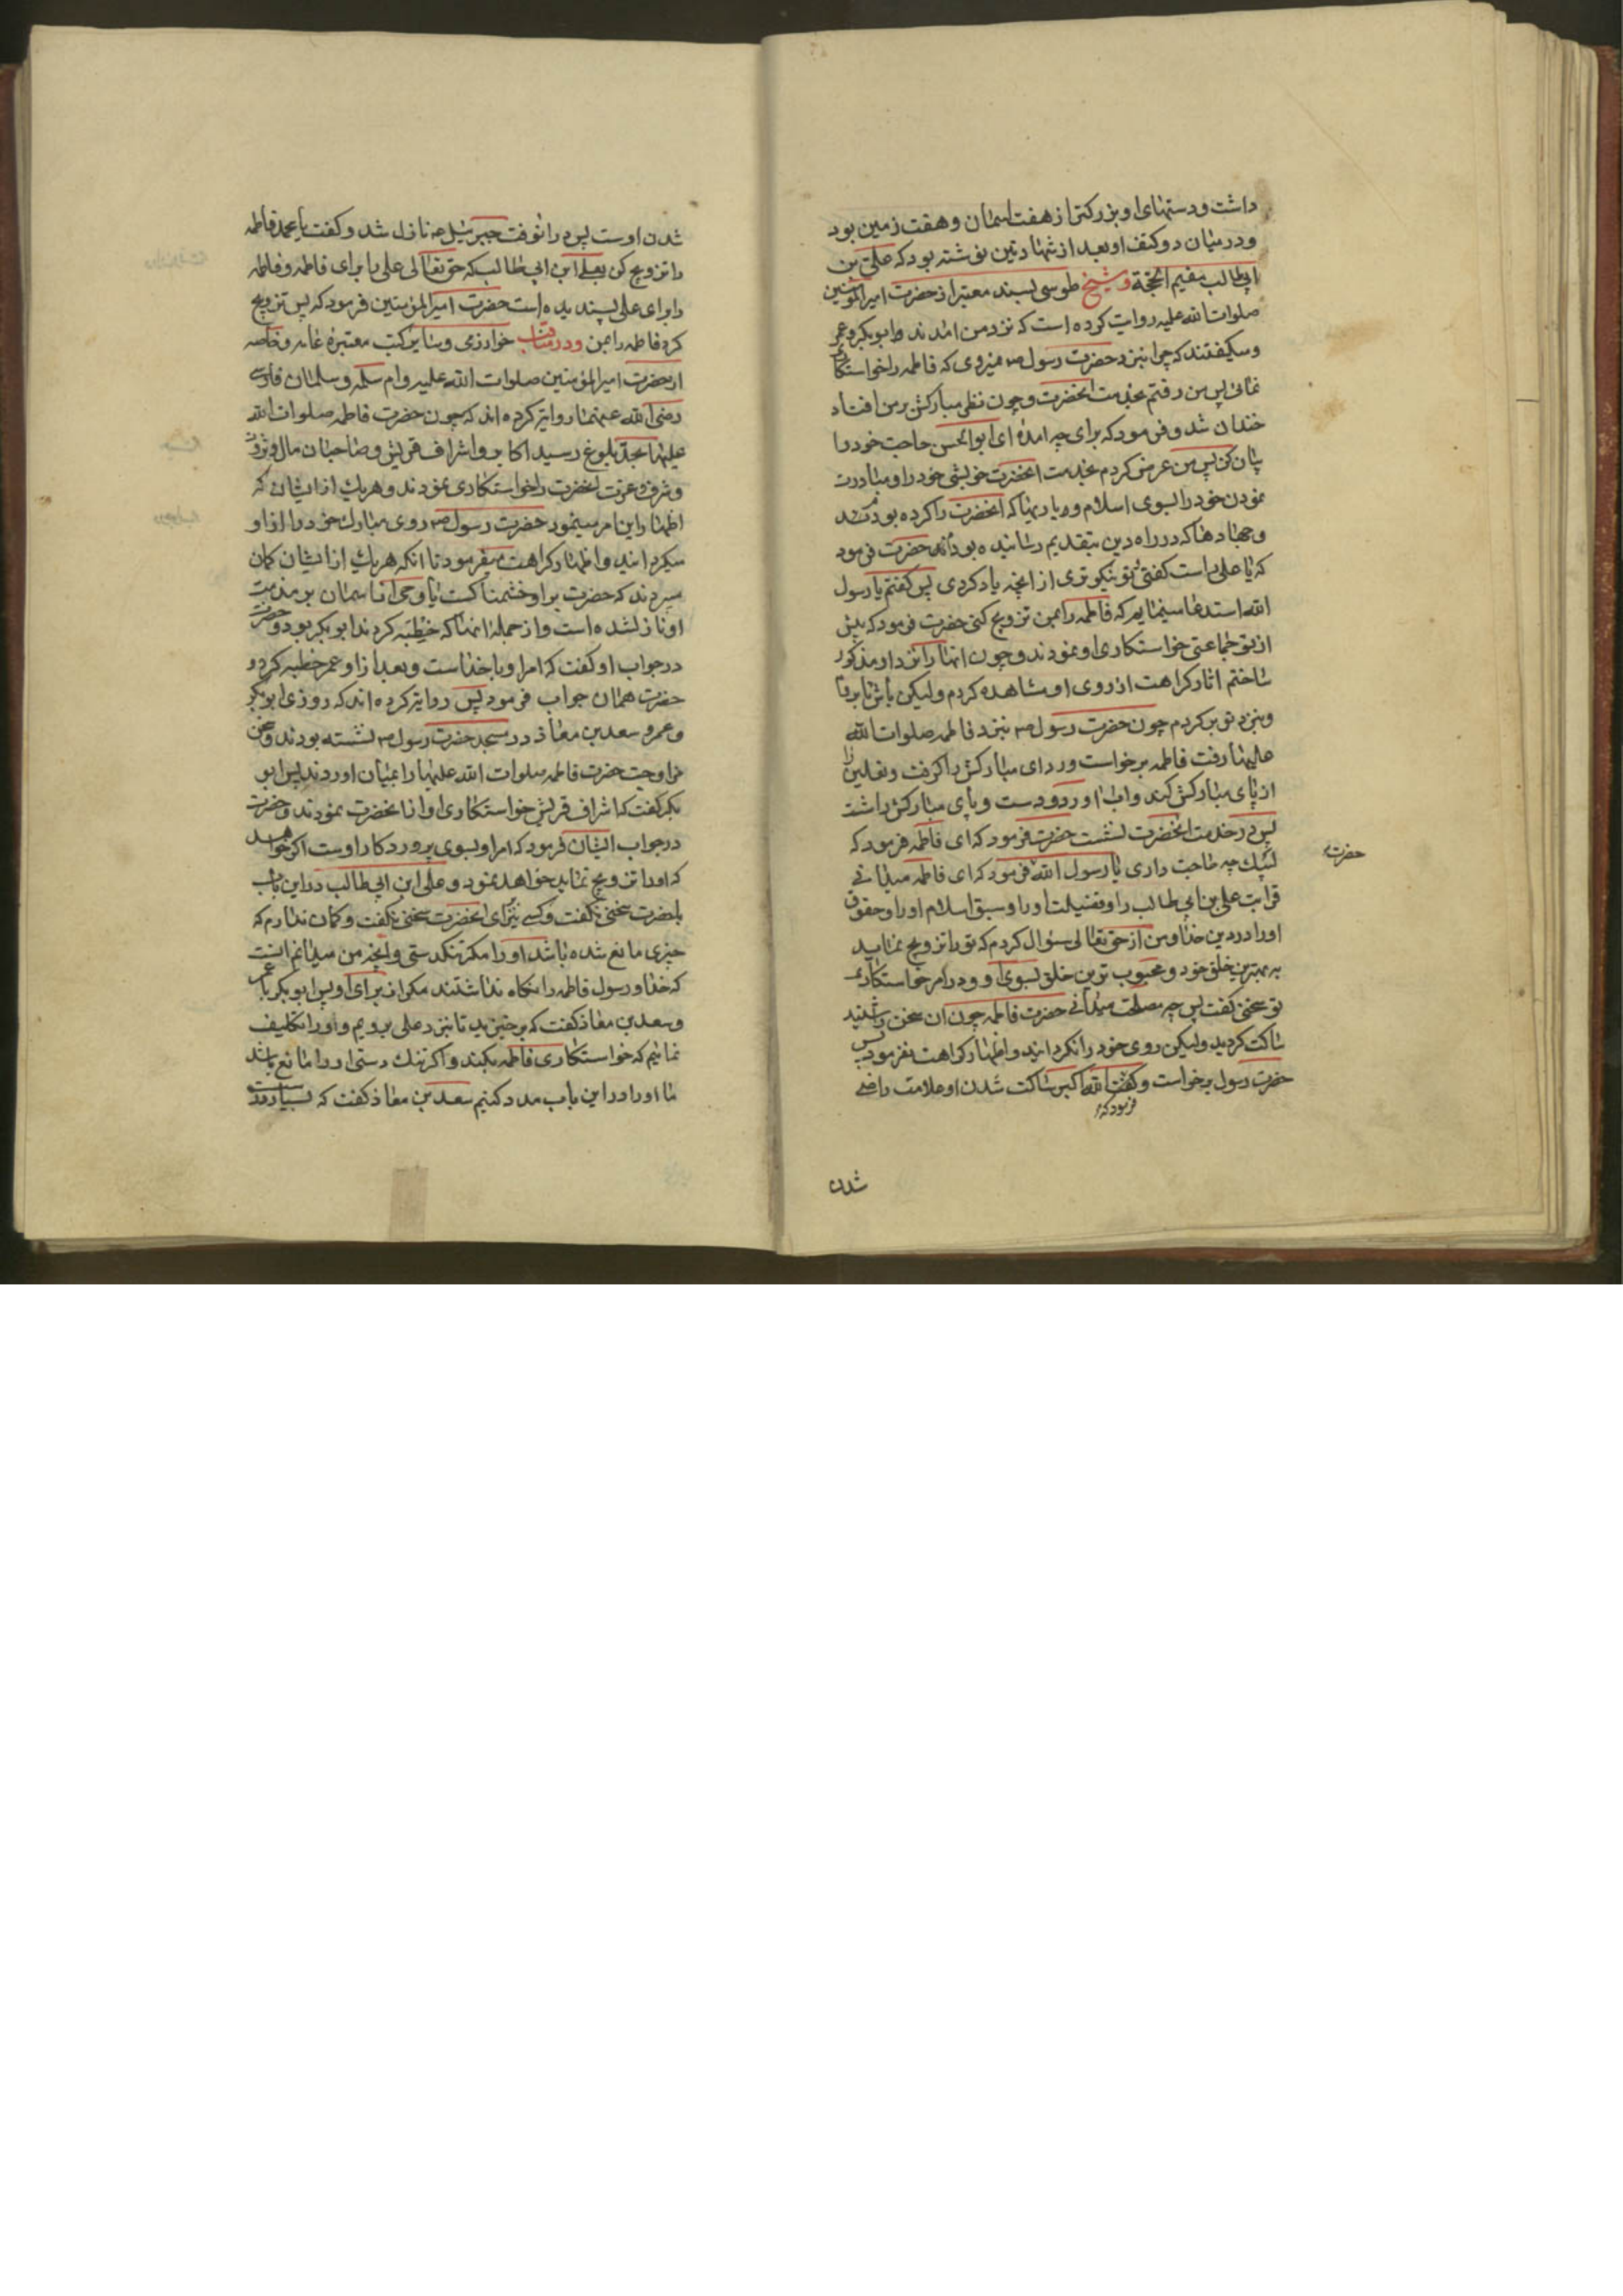 داشت و دستهای او بزرکتر از هفت اسمان و هفت زمین بود
و در میان دو کتف او بعد از شهادتین نوشته بود که علی بن
ابیطالب مقیم الحجة و شیخ طوسی بسند معتبر از حضرت امیرالمؤمنین
صلوات الله علیه روایت کرده است که نزد من امدند ابوبکر و عمر
و میکفتند که چرا نبزد حضرت رسول ص نمیروی که فاطمه را خواستکاری
نمائی پس من رفتم بخدمت انحضرت و چون نظر مبارکش بر من افتاد
خندان شد و فرمود که برای چه امدۀ ای ابوالحسن حاجت خود را
بیان کن پس من عرض کردم بخدمت انحضرت خویشی خود را و مبادرت
نمودن خود را بسوی اسلام و یاریهاکه انحضرت را کرده بودند
و جهادهاکه در راه دین بتقدیم رسانیده بود حضرت فرمود
که یا علی راست کفتی تو نیکوتری از انچه یاد کردی پس کفتم یا رسول
الله استدعا مینمایم که فاطمه را بمن تزویج کنی حضرت فرمود که پیش
از تو جماعتی خواستکاری او نمودند و چون انها را نزد او مذکور
ساختم اثار کراهت از روی او مشاهده کردم ولیکن باش تا بروم
و بنزد تو برکردم چون حضرت رسول ص نبزد فاطمه صلوات الله
علیها رفت فاطمه برخواست و ردای مبارکش را کرفت و نعلین را
از پای مبارکش کند و اب اورد و دست و پای مبارکش را شت
پس در خدمت انحضرت نشست حضرت فرمود که ای فاطمه فرمود که
لبیک چه حاجت داری یا رسول الله فرمود که ای فاطمه میدانی
حضرت
قرابت علی بن ابی طالب را و فضیلت او را و سبق اسلام او را و حقوق
او را در دین خدا و من از حق تعالی سؤال کردم که تو را تزویج نماید
به بهترین خلق خود و محبوب ترین خلق بسوی او و در امر خواستکاری
تو سخنی کفت پس چه مصلحت میدانی حضرت فاطمه چون ان سخن را شنید
ساکت کردید ولیکن روی خود را نکردانید و اظهار کراهت نفرمود پس
حضرت رسول برخواست و کفت الله اکبر ساکت شدن او علامت راضی
فرمود که
شدن
شدن اوست پس در انوقت جبرئیل ع نازل شد و کفت یا محمد فاطمه
را تزویج کن بعلی ابن ابی طالب که حق تعالی علی را برای فاطمه و فاطمه
را برای علی پسندیده است حضرت امیرالمؤمنین فرمود که پس تزویج
کرد فاطمه را بمن و در مناقب خوارزمی و سایر کتب معتبرۀ عامه و خاصه
از حضرت امیرالمؤمنین صلوات الله علیه و ام سلمه و سلمان فارسی
رضی الله عنهما روایتکرده اند که چون حضرت فاطمه صلوات الله
علیها بحد بلوغ رسید اکابر و اشراف قریش و صاحبان مال و ثروت
و شرف و عزت انحضرت را خواستکاری نمودند و هریک از ایشان که
اظهار این امر مینمود حضرت رسول ص روی مبارک خود را از او
میکردانید و اظهار کراهت میفرمود تا انکه هریک از ایشان کمان
میبردند که حضرت بر او خشمناکست یا وحی از اسمان بر مذمت
او نازل شده است و از جمله انهاکه خطبه کردند ابوبکر بود و حضرت
در جواب او کفت که امر او با خداست و بعد از او عمر خطبه کرد و
حضرت همان جواب فرمود پس روایتکرده اند که روزی ابوبکر
و عمر و سعد بن معاذ در مسجد حضرت رسول ص نشسته بودند و سخن
مزاوجت حضرت فاطمه صلوات الله علیها را بمیان اوردند پس ابو
بکر کفت که اشراف قریش خواستکاری او از انحضرت نمودند و حضرت
در جواب ایشان فرمود که امر او بسوی پروردکار اوست اکر خواهد
که او را تزویج نماید خواهد نمود و علی ابن ابی طالب در این باب
با حضرت سخنی نکفت و کسی نیز برای انحضرت سخنی نکفت و کمان ندارم که
چیزی مانع شده باشد او را مکر تنکدستی و انچه من میدانم انست
که خدا و رسول فاطمه را نکاه نداشتند مکر از برای او پس ابوبکر با عمر
و سعد بن معاذ کفت که برخیزید تا نبزد علی برویم و او را تکلیف
نمائیم که خواستکاری فاطمه بکند و اکر تنک دستی او را مانع باشد
ما او را در این باب مدد کنیم سعد بن معاذ کفت که بسیار درست